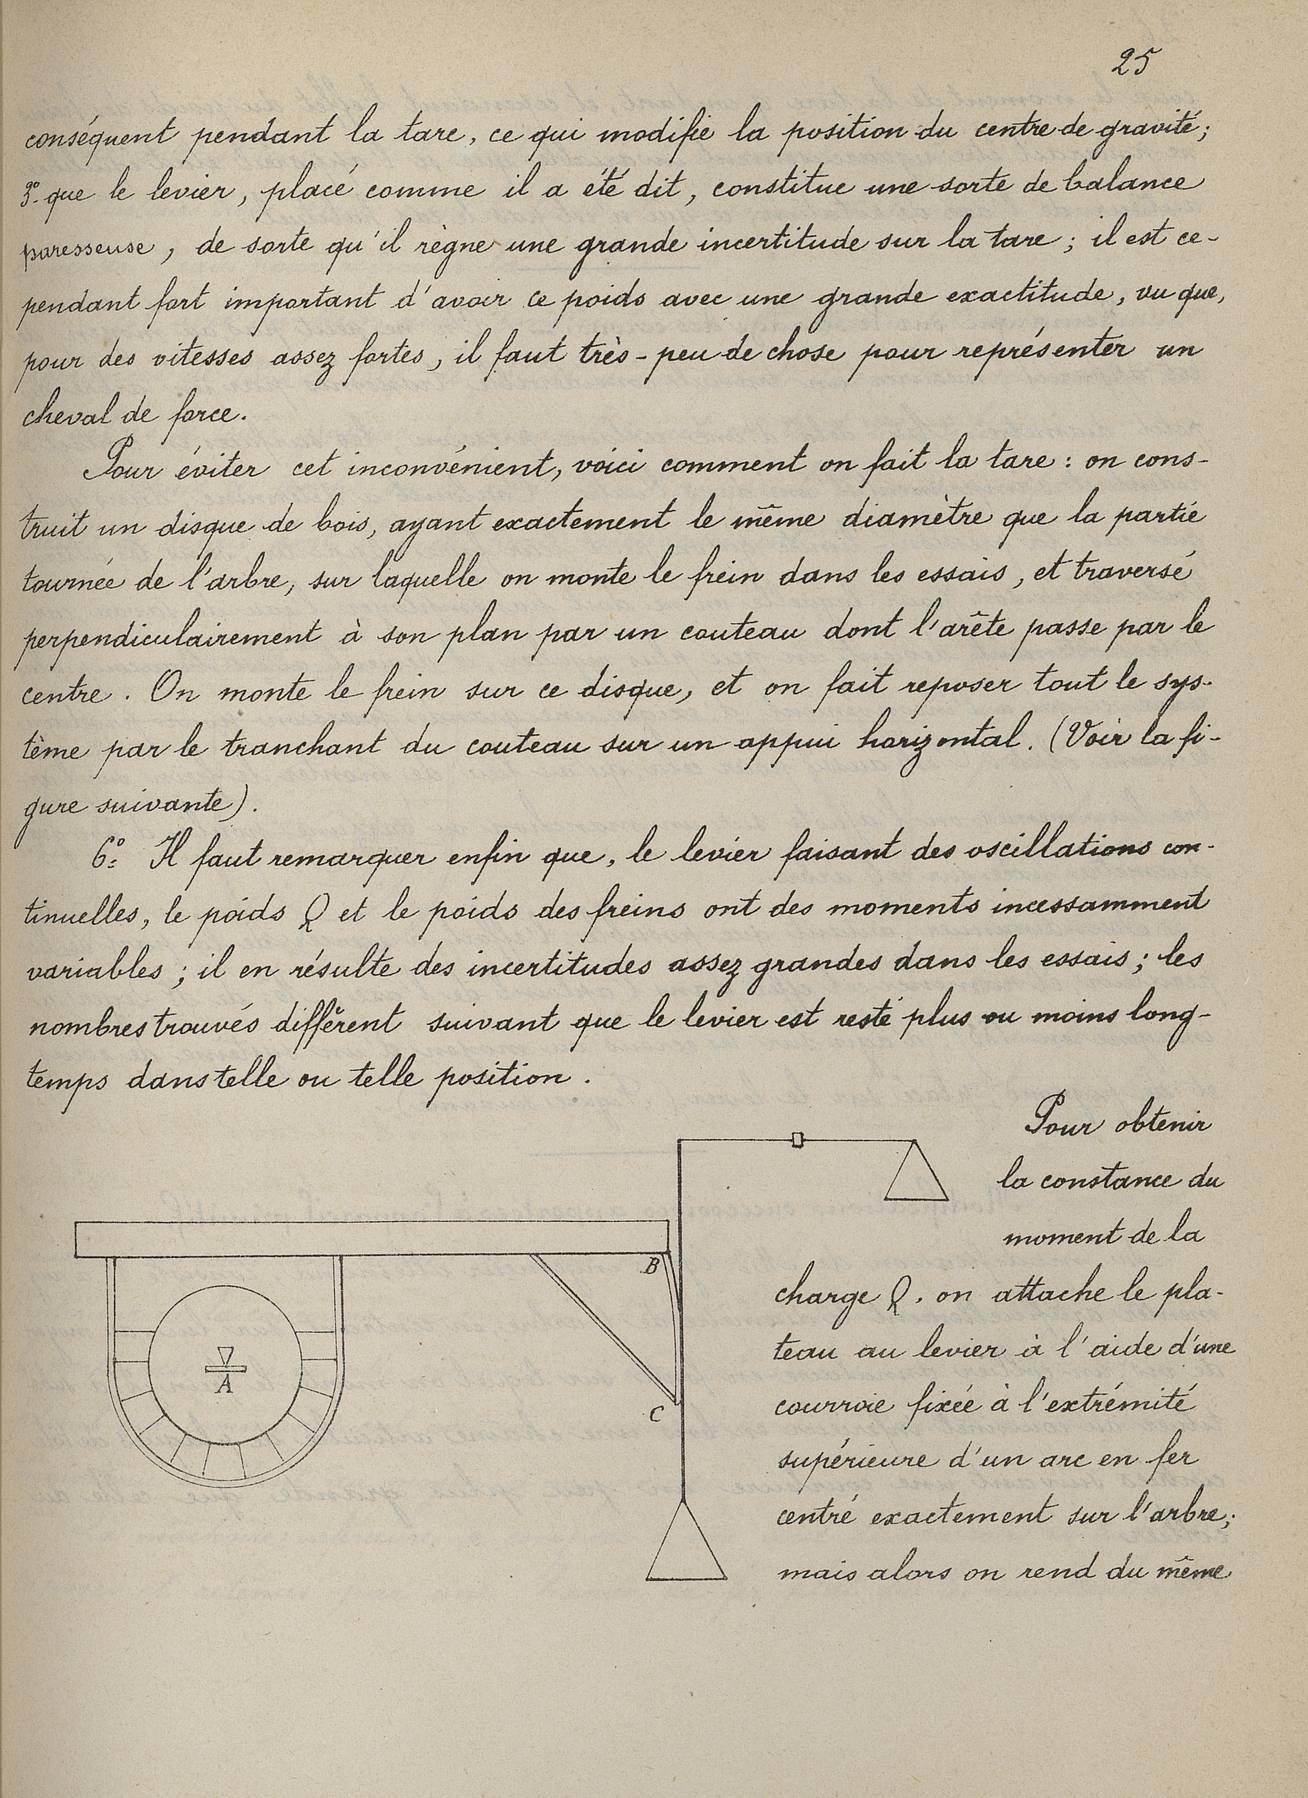 25
conséquent pendant la tare, ce qui modifie la position du centre de gravité;
3º. que le levier, placé comme il a été dit, constitue une sorte de balance
paresseuse, de sorte qu'il règne une grande incertitude sur la tare; il est ce-
pendant fort important d'avoir ce poids avec une grande exactitude, vu que,
pour des vitesses assez fortes, il faut très-peu de chose pour représenter un
cheval de force.
Pour éviter cet inconvénient, voici comment on fait la tare: on cons-
truit un disque de bois, ayant exactement le même diamètre que la partie
tournée de l'arbre, sur laquelle on monte le frein dans les essais, et traversé
perpendiculairement à son plan par un couteau dont l'arête passe par le
centre. On monte le frein sur ce disque, et on fait reposer tout le sys-
tème par le tranchant du couteau sur un appui horizontal. (Voir la fi-
gure suivante).
6º. Il faut remarquer enfin que, le levier faisant des oscillations con-
tinuelles, le poids Q et le poids des freins ont des moments incessamment
variables; il en résulte des incertitudes assez grandes dans les essais; les
nombres trouvés diffèrent suivant que le levier est resté plus ou moins long-
temps dans telle ou telle position.
Pour obtenir
la constance du
moment de la
charge Q, on attache le pla-
teau au levier à l'aide d'une
courroie fixée à l'extrémité
supérieure d'un arc en fer
centré exactement sur l'arbre;
mais alors on rend du même
B
A
C